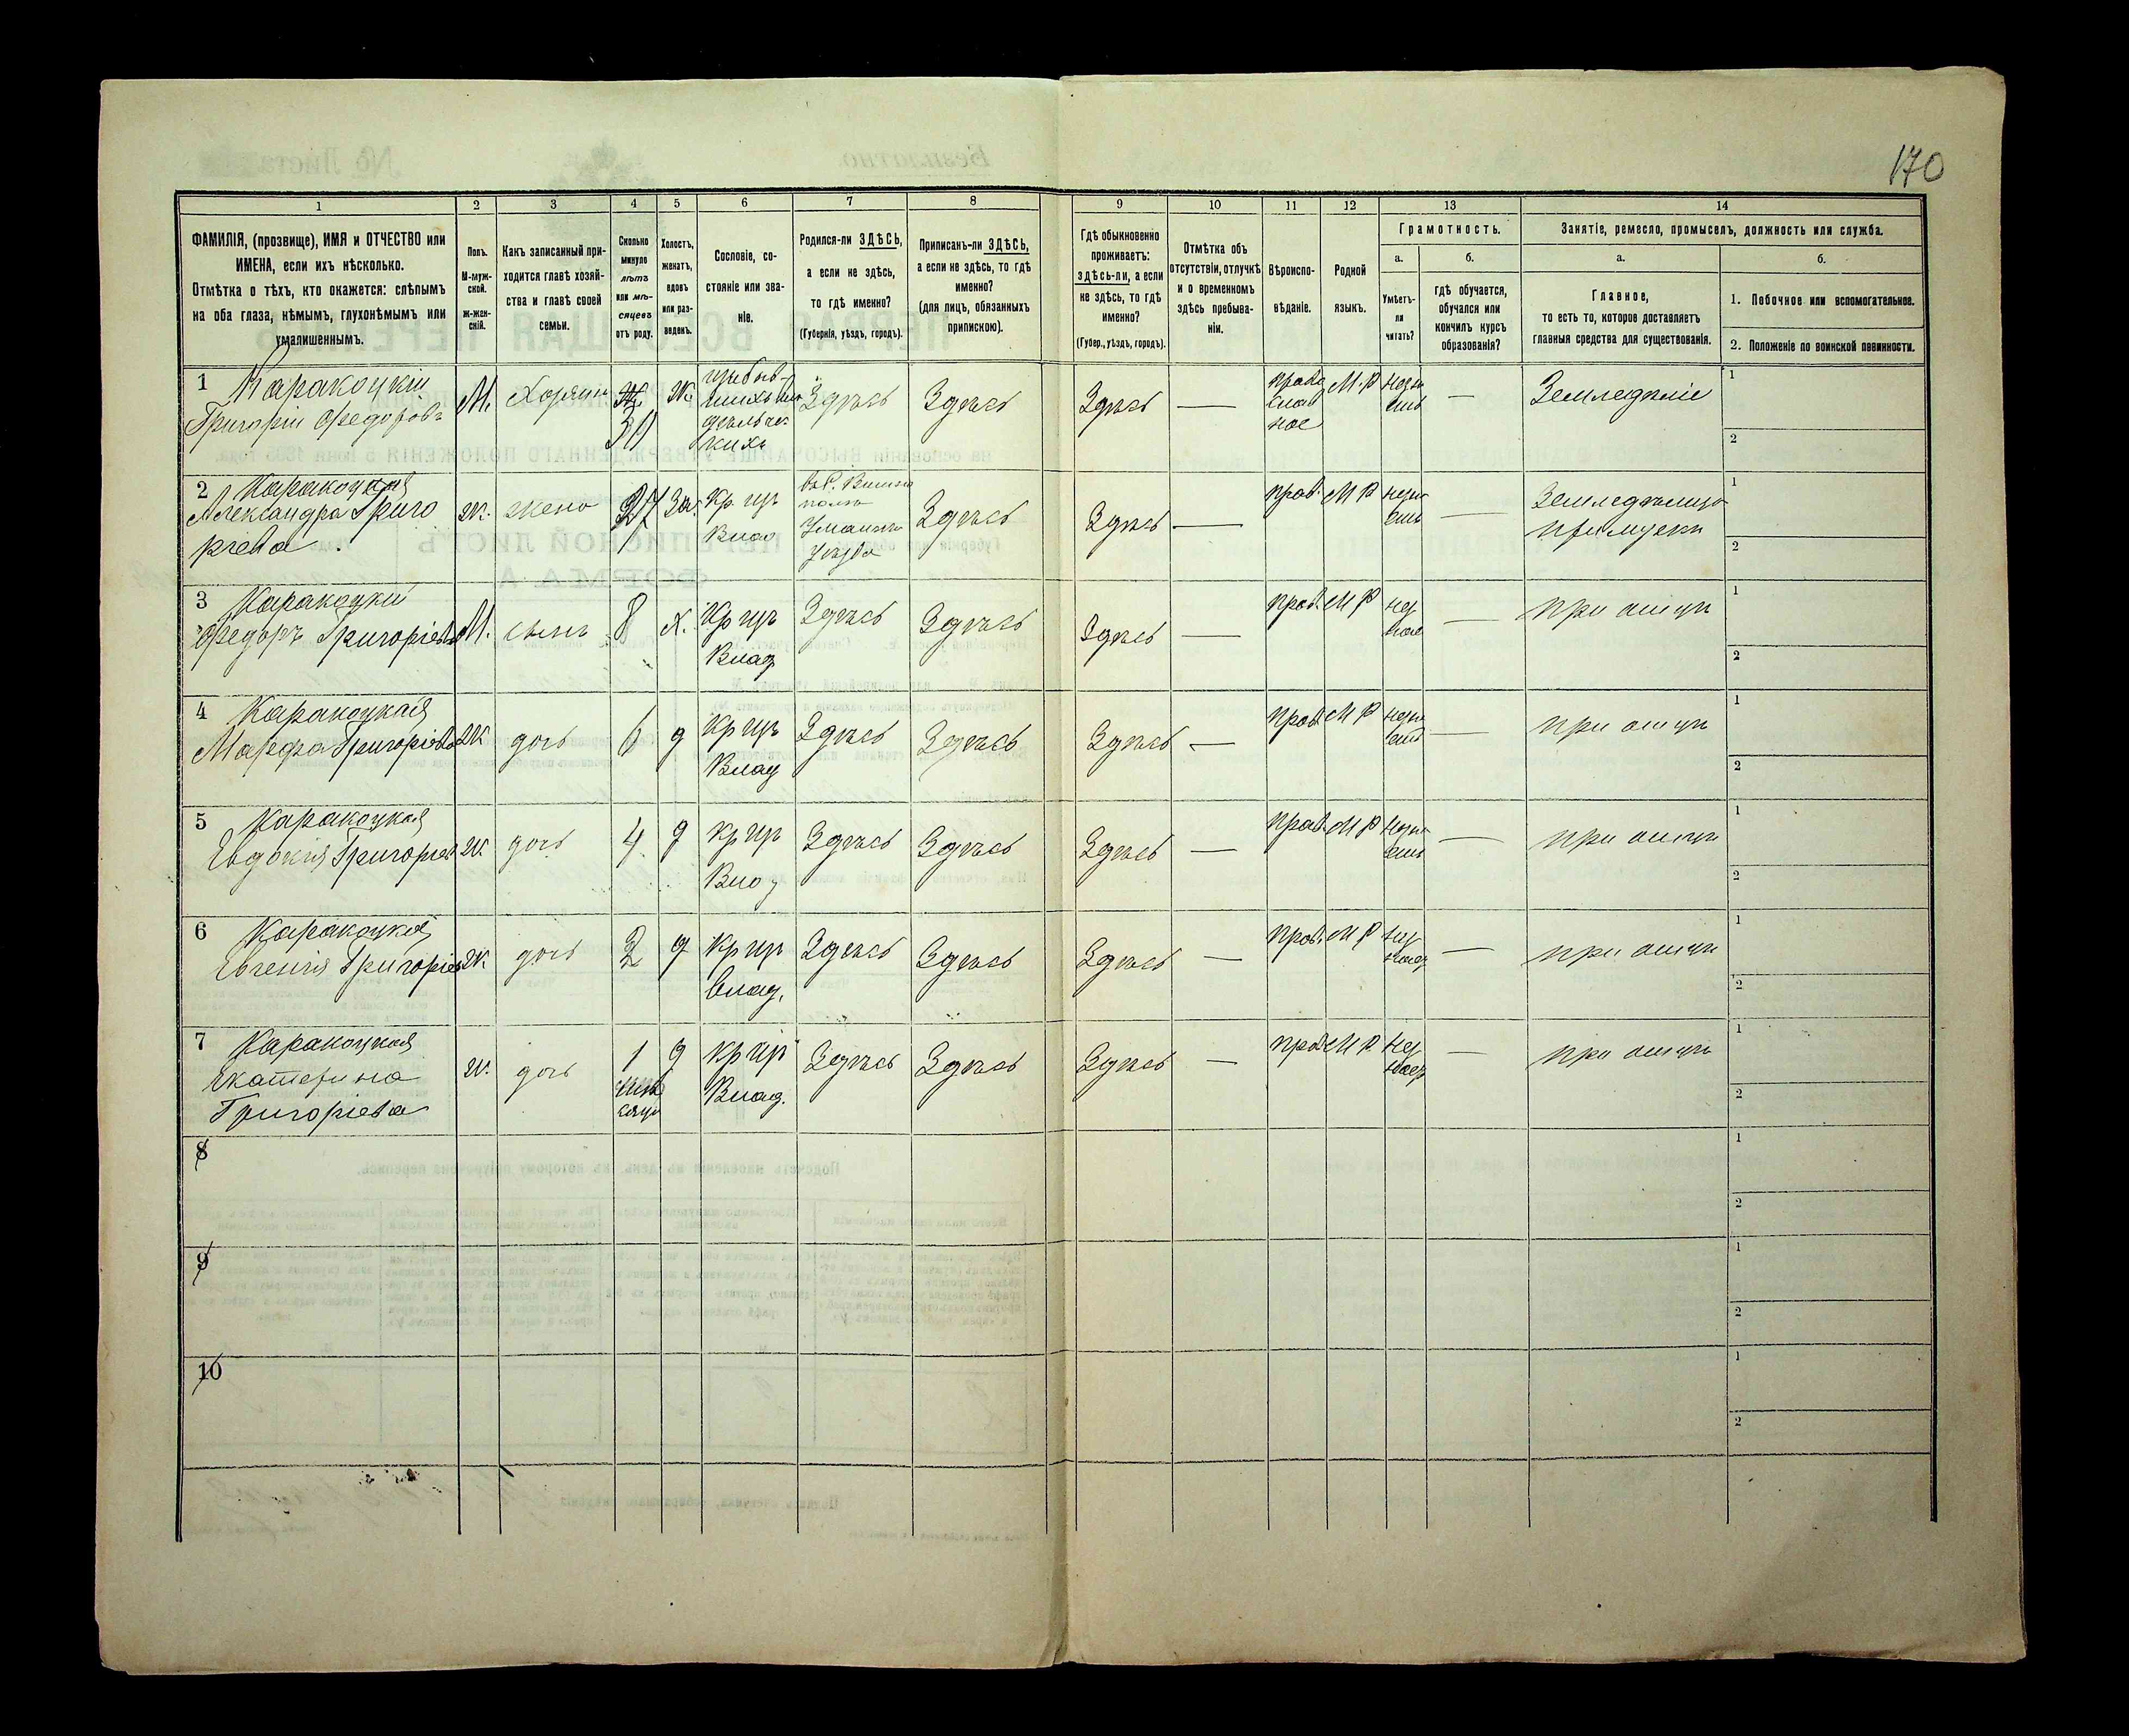 170
1
2
3
4
5
6
7
8
9
10
11
12
13
14
ФАМИЛІЯ, (прозвище), ИМЯ и ОТЧЕСТВО или
ИМЕНА, если ихъ нѣсколько.
Отмѣтка о тѣхъ, кто окажется: слѣпымъ
на оба глаза, нѣмымъ, глухонѣмымъ или
умалишеннымъ.
Полъ.
М-муж-
ской.
Ж-жен-
скій.
Какъ записанный при-
ходится главѣ хозяй-
ства и главѣ своей
семьи.
Сколько
минуло
лѣтъ
или мѣ-
сяцевъ
отъ роду.
Холостъ,
женатъ,
вдовъ
или раз-
веденъ.
Сословіе, со-
стояніе или зва-
ніе.
Родился-ли ЗДѢСЬ,
а если не здѣсь,
то гдѣ именно?
(Губернія, уѣздъ, городъ).
Приписанъ-ли ЗДѢСЬ,
а если не здѣсь, то гдѣ
именно?
(для лицъ, обязанныхъ
припискою).
Гдѣ обыкновенно
проживаетъ:
здѣсь-ли, а если
не здѣсь, то гдѣ
именно?
(Губер., уѣздъ, городъ).
Отмѣтка объ
отсутствіи, отлучкѣ
и о временномъ
здѣсь пребыва-
ніи.
Вѣроиспо-
вѣданіе.
Родной
языкъ.
Грамотность.
а.
Умѣетъ-
ли
читать?
б.
гдѣ обучается,
обучался или
кончилъ курсъ
образованія?
Занятіе, ремесло, промыселъ, должность или служба.
а.
Главное,
то есть то, которое доставляетъ
главныя средства для существованія.
б.
1. Побочное или вспомогательное.
2. Положеніе по воинской повинности.
1 Каракоцкій
Григорій Федоровъ
М.
Хозяинъ
Ж.
Здѣсь
Здѣсь
Здѣсь
—
право
слав
ное
М. Р
—
Земледѣліе
1
2
2 Каракоцкая
Александра Григо
ріева
Ж.
жена
27
За.
Здѣсь
Здѣсь
—
прав.
М Р
—
1
2
3 Каракоцкій
Федоръ Григоріевъ
М.
сынъ
8
х.
Здѣсь
Здѣсь
Здѣсь
—
прав.
М Р
—
при отцѣ
1
2
4 Каракоцкая
Марфа Григоріева
Ж
дочь
6
д
Здѣсь
Здѣсь
Здѣсь
—
прав.
М Р
—
при отцѣ
1
2
5 Каракоцкая
Евдокія Григоріев
Ж
дочь
4
д
Здѣсь
Здѣсь
Здѣсь
—
прав.
М Р
—
при отцѣ
1
2
6 Каракоцкая
Евгенія Григоріев
Ж
дочь
2
д
Влад.
Здѣсь
Здѣсь
Здѣсь
—
прав.
М Р
—
при отцѣ
1
2
7 Каракоцкая
Екатерина
Григоріева
Ж.
дочь
1
д
Влад.
Здѣсь
Здѣсь
Здѣсь
—
прав.
М Р.
—
при отцѣ
1
2
8
1
2
9
1
2
10
1
2